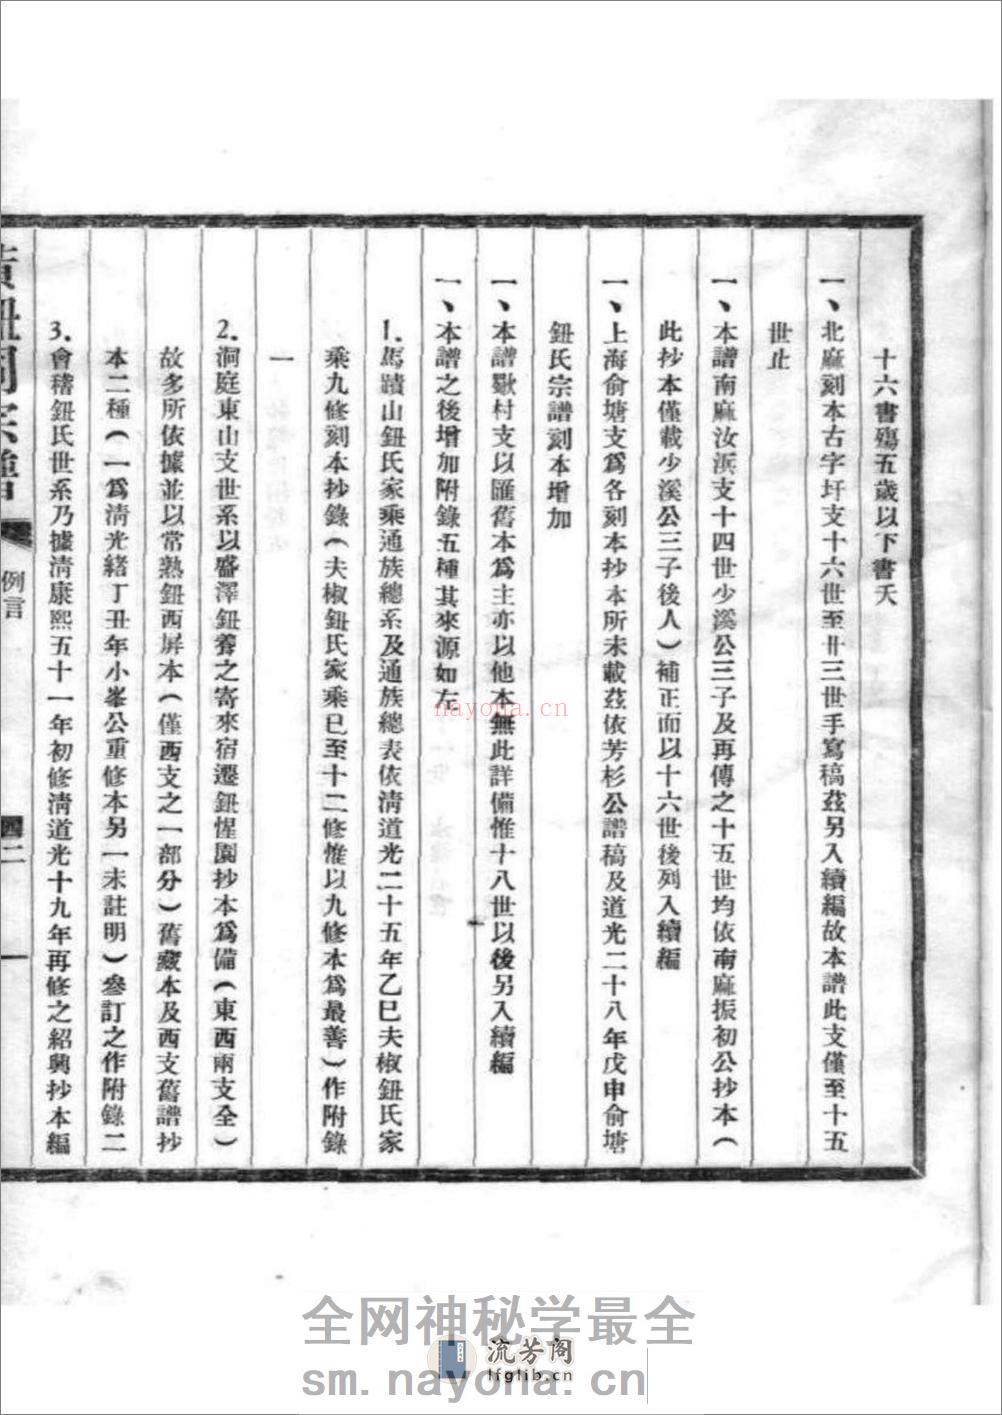 十六書殤五歲以下書夭
一、北麻刻本古字圩支十六世至卄三世手寫稿茲另入續編故本譜此支僅至十五
世止
一、本譜南麻汝浜支十四世少溪公三子及再傳之十五世均依南麻振初公抄本(
此抄本僅載少溪公三子後人)補正而以十六世後列入續編
一、上海俞塘支爲各刻本抄本所未載茲依芳杉公譜稿及道光二十八年戊申俞塘
鈕氏宗譜刻本增加
一、本譜歠村支以匯舊本爲主亦以他本無此詳備惟十八世以後另入續編
一、本譜之後增加附錄五種其來源如左
1.馬蹟山鈕氏家乘通族總系及通族總表依清道光二十五年乙巳夫椒鈕氏家
乘九修刻本抄錄(夫椒鈕氏家乘已至十二修惟以九修本爲最善)作附錄
一
2.洞庭東山支世系以盛澤鈕養之寄來宿遷鈕惺園抄本爲備(東西兩支全)
故多所依據並以常熟鈕西屏本(僅西支之一部分)舊藏本及西支舊譜抄
本二種(一爲清光緒丁丑年小峯公重修本另一未註明)參訂之作附錄二
3.會稽鈕氏世系乃據清康熙五十一年初修清道光十九年再修之紹興抄本編
例言
二
一
nayona.cn
全网神秘学最全
流芳阁
lfglib.cn
sm.nayona.cn